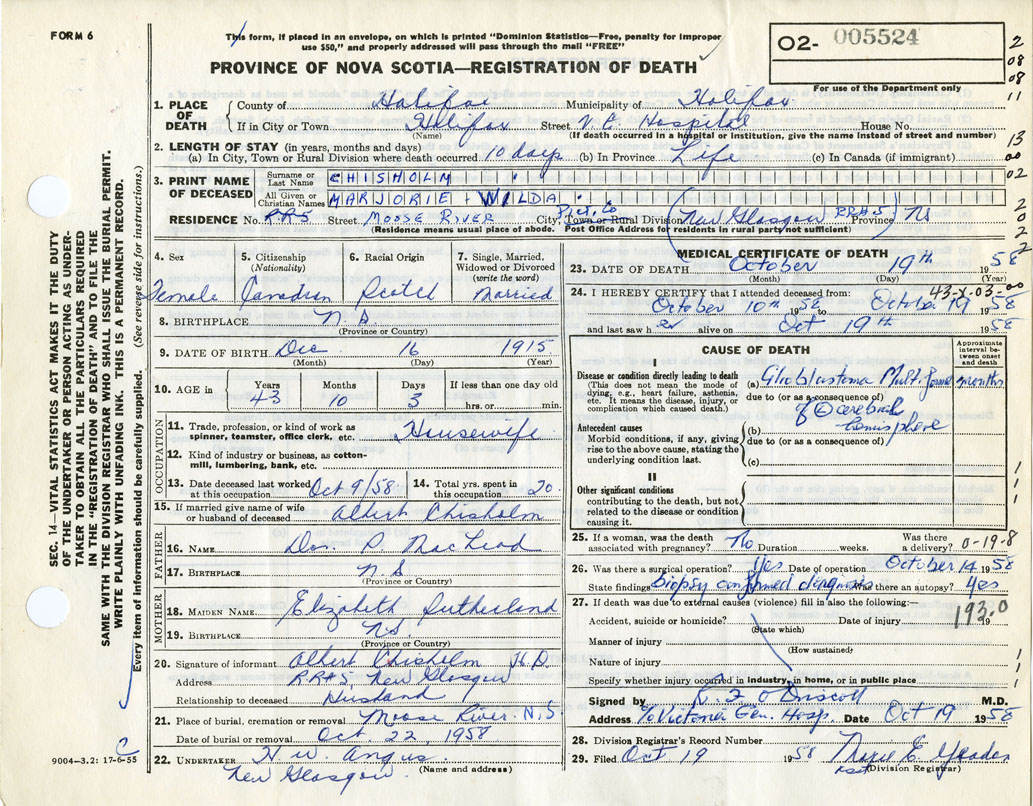 FORM 6
This form, if placed in an envelope, on which is printed "Dominion Statistics—Free, penalty for improper
use $50," and properly addressed will pass through the mail "FREE"
O2- 005524
For use of the Department only
PROVINCE OF NOVA SCOTIA—REGISTRATION OF DEATH
2
08
08
11
13
00
02
2
0
2
2
1. PLACE OF DEATH County of Halifax Municipality of Halifax
If in City or Town Halifax Street V.G. Hospital House No.
(Name) (If death occurred in a hospital or institution, give the name instead of street and number)
2. LENGTH OF STAY (in years, months and days)
(a) In City, Town or Rural Division where death occurred 10 days (b) In Province Life (c) In Canada (if immigrant)
3. PRINT NAME OF DECEASED Surname or Last Name CHISHOLM
All Given or Christian Names MARJORIE WILDA
RESIDENCE No. RR5 Street MOOSE RIVER City, Town or Rural Division Pict. Co New Glasgow RR#5 Province NS
(Residence means usual place of abode. Post Office Address for residents in rural parts not sufficient)
4. Sex Female
5. Citizenship (Nationality) Canadian
6. Racial Origin Scotch
7. Single, Married, Widowed or Divorced (write the word) Married
8. BIRTHPLACE N.S
(Province or Country)
9. DATE OF BIRTH Dec 16 1915
(Month) (Day) (Year)
10. AGE in Years 43 Months 10 Days 3 If less than one day old
hrs. or min.
OCCUPATION
11. Trade, profession, or kind of work as spinner, teamster, office clerk, etc. Housewife
12. Kind of industry or business, as cotton-mill, lumbering, bank, etc.
13. Date deceased last worked at this occupation Oct 9/58 14. Total yrs. spent in this occupation 20
15. If married give name of wife or husband of deceased Albert Chisholm
FATHER
16. NAME Dan P. MacLeod
17. BIRTHPLACE N.S
(Province or Country)
MOTHER
18. MAIDEN NAME Elizabeth Sutherland
19. BIRTHPLACE NS
(Province or Country)
20. Signature of informant Albert Chisholm
Address RR#5 New Glasgow
Relationship to deceased Husband
21. Place of burial, cremation or removal Moose River N.S.
Date of burial or removal Oct. 22 1958
22. UNDERTAKER H W Angus
New Glasgow (Name and address)
MEDICAL CERTIFICATE OF DEATH
23. DATE OF DEATH October 19th 1958
(Month) (Day) (Year)
43-X-03-00
24. I HEREBY CERTIFY that I attended deceased from:
October 10th 1958 to October 19 1958
and last saw her alive on Oct 19th 1958
CAUSE OF DEATH
Approximate interval between onset and death
I
Disease or condition directly leading to death
(This does not mean the mode of dying, e.g., heart failure, asthenia, etc. It means the disease, injury, or complication which caused death.)
(a) Glioblastoma Multiforme months
due to (or as a consequence of)
of L cerebral
hemisphere
Antecedent causes
Morbid conditions, if any, giving rise to the above cause, stating the underlying condition last.
(b)
due to (or as a consequence of)
(c)
II
Other significant conditions
contributing to the death, but not related to the disease or condition causing it.
25. If a woman, was the death associated with pregnancy? No Duration weeks. Was there a delivery? 0-19-8
26. Was there a surgical operation? Yes Date of operation October 14 1958
State findings Biopsy confirmed diagnosis Was there an autopsy? Yes
27. If death was due to external causes (violence) fill in also the following:—
Accident, suicide or homicide? Date of injury 19
193.0
(State which)
Manner of injury
(How sustained)
Nature of injury
Specify whether injury occurred in industry, in home, or in public place
Signed by K. F. O'Driscoll M.D.
Address c/o Victoria Gen. Hosp. Date Oct 19 1958
28. Division Registrar's Record Number
29. Filed Oct 19 1958
(Division Registrar)
SEC. 14—VITAL STATISTICS ACT MAKES IT THE DUTY
OF THE UNDERTAKER OR PERSON ACTING AS UNDER-
TAKER TO OBTAIN ALL THE PARTICULARS REQUIRED
IN THE "REGISTRATION OF DEATH" AND TO FILE THE
SAME WITH THE DIVISION REGISTRAR WHO SHALL ISSUE THE BURIAL PERMIT.
WRITE PLAINLY WITH UNFADING INK. THIS IS A PERMANENT RECORD.
Every item of information should be carefully supplied. (See reverse side for instructions.)
9004—3.2: 17-6-55